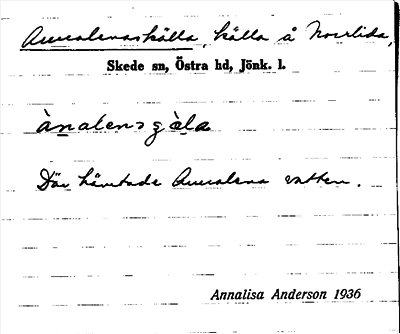 Annalenaskälla, källa å Norrlida,
Skede sn, Östra hd, Jönk. l.
ànalensçèla
Där hämtade Annalena vatten.
Annalisa Anderson 1936